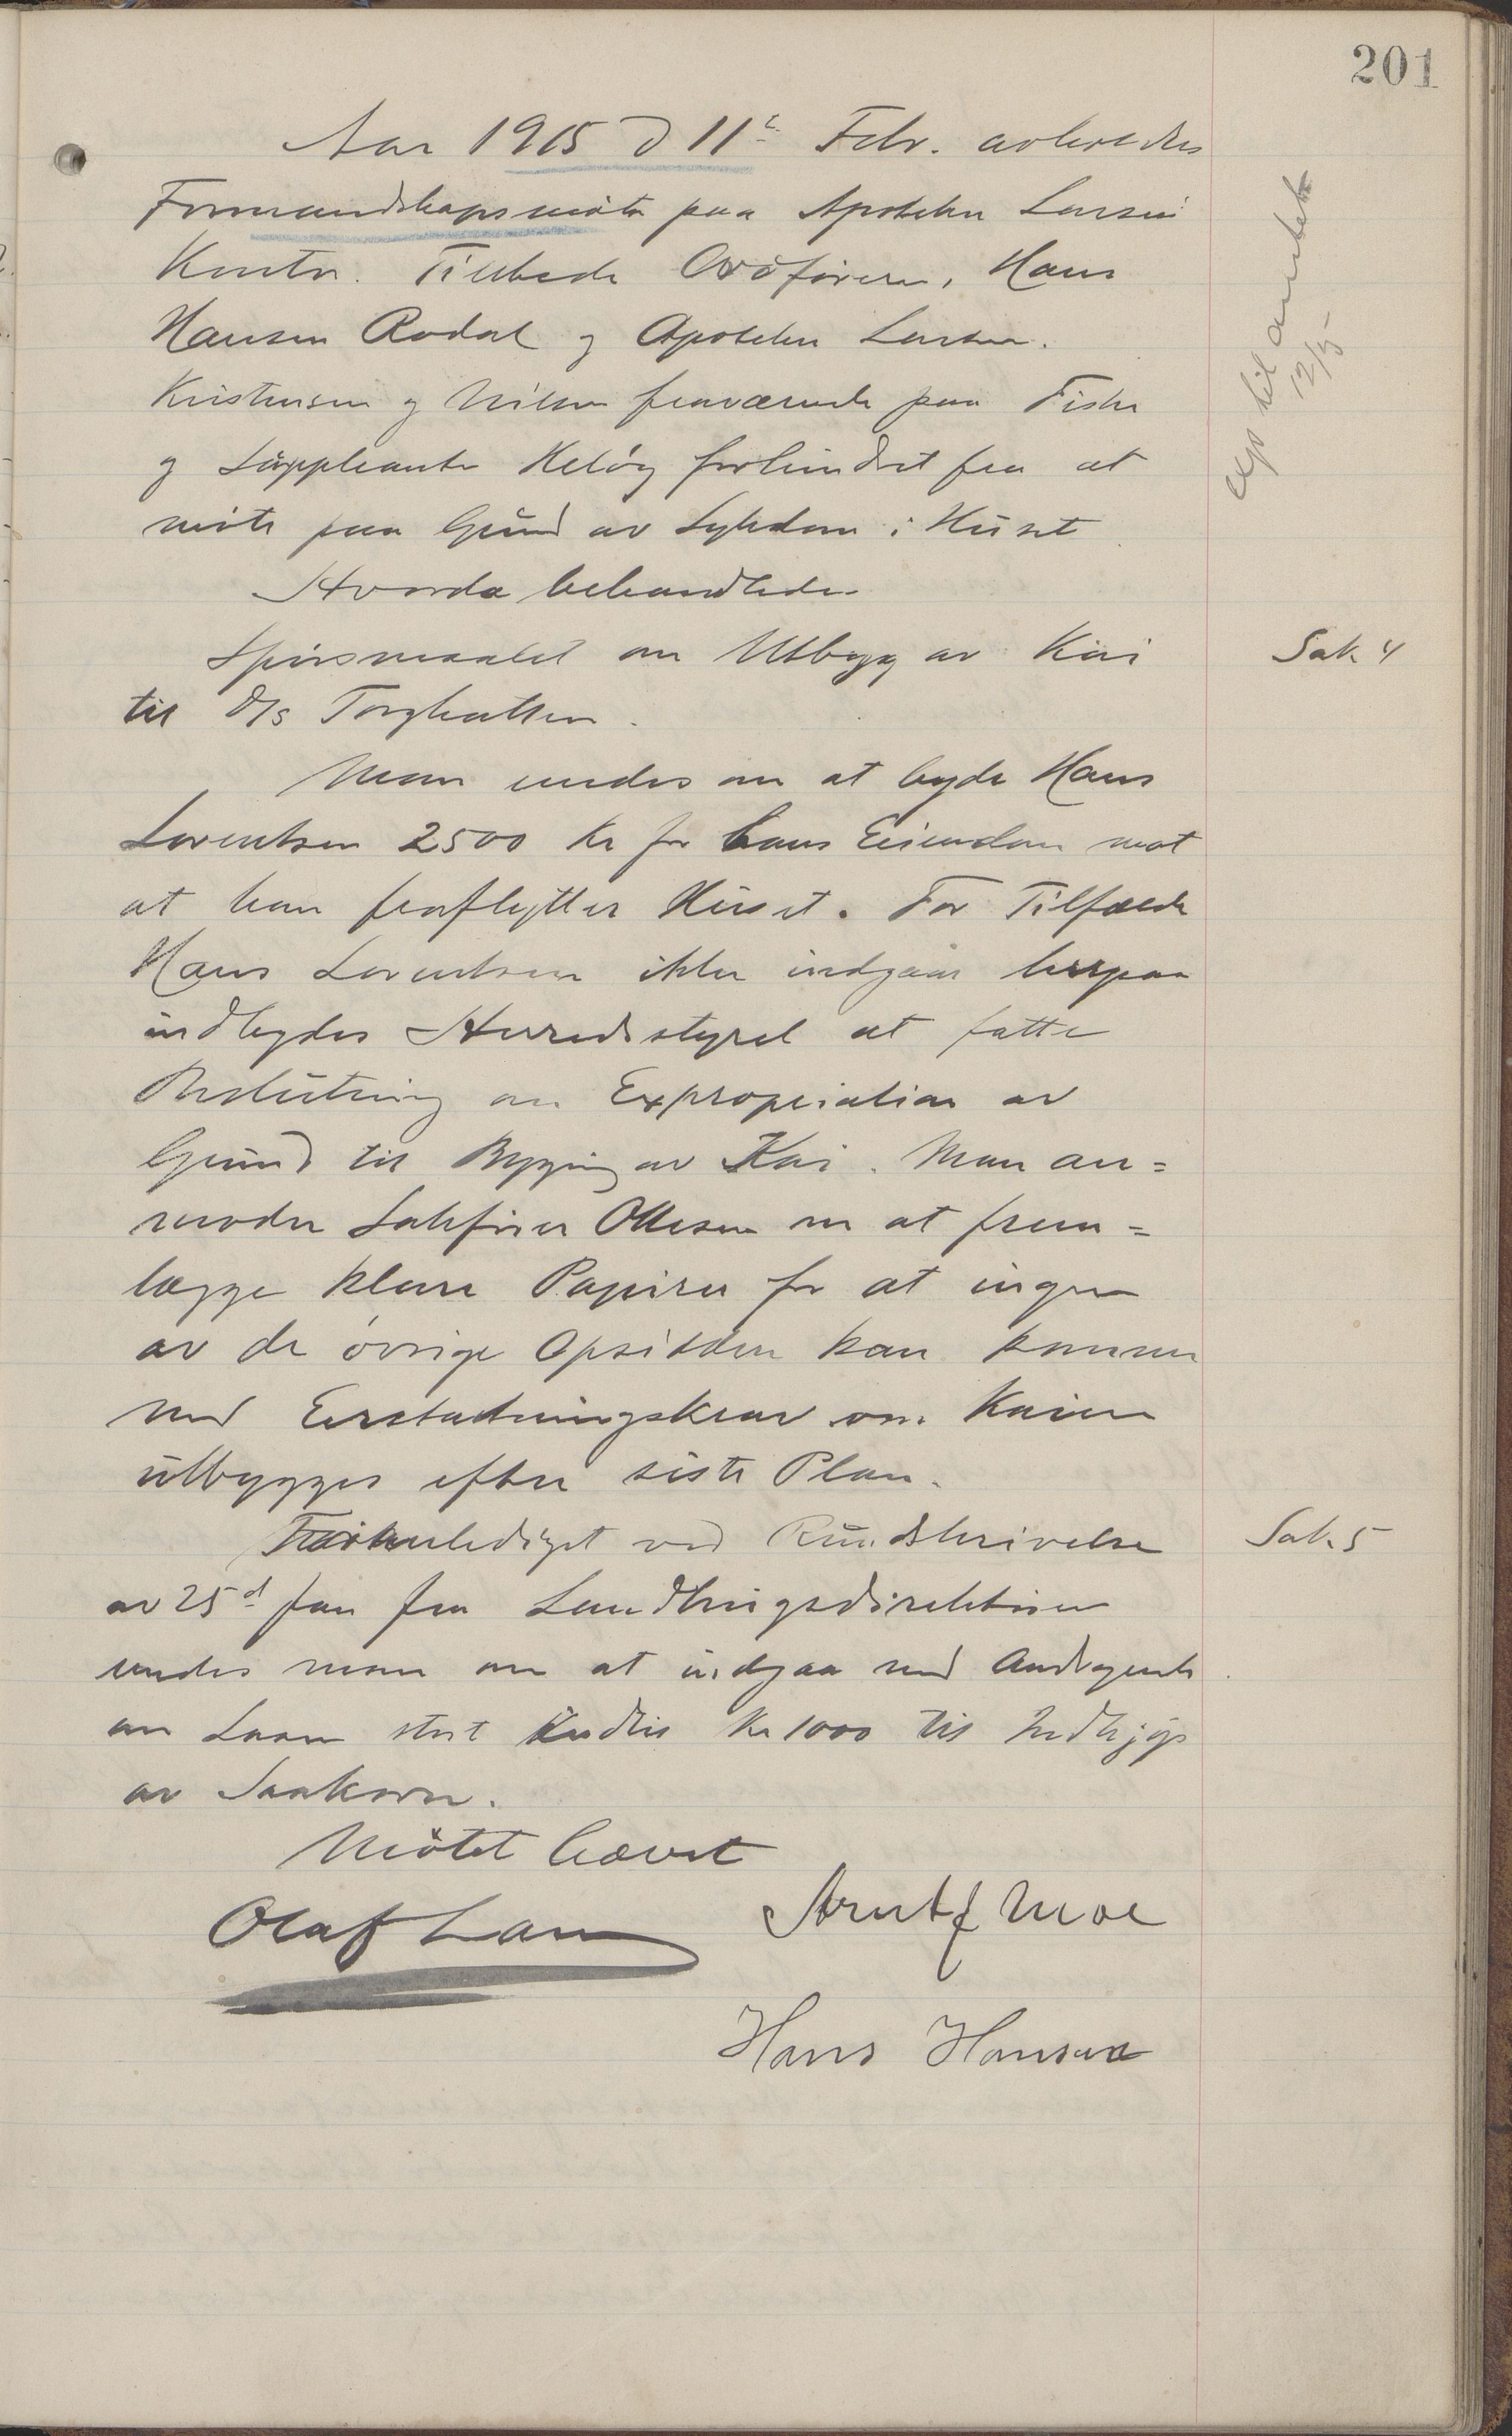 201
Aar 1915 d 11te Febr. avholdtes
Formandskapsmöte paa Apoteker Larsens
Kontor. Tilstede Ordföreren, Hans
Hansen Rodal og Apoteker Larsen.
Kristensen og Nilsen fraværende paa Fiske
og Suppleante Helöy forhindret fra at
möte paa Grund av Sykdom i Huset
Hvorda behandledes
Spörsmaalet om Utbygg av Kai
Sak 4
til D/S Torghatten.
Man enedes om at byde Hans
Lorentsen 2500 Kr for hans Eiendom mot
at han fraflytter Huset. For Tilfælde
Hans Lorentsen ikke indgaar herpaa
indbydes Herredsstyret at fatte
Beslutning om Expropriation av
Grund til Bygging av Kai. Man an=
moder Sakförer Ottesen om at frem=
lægge klare Papirer for at ingen
av de övrige Opsiddere kan komme
med Erstatningskrav om Kaien
utbygges efter siste Plan.
Foranlediget ved Rundskrivelse
Sak 5
av 25d Jan fra Landbrugsdirektören
enedes man om at indgaa med Andragende
om Laan stort indtil Kr 1000 til Indkjöp
av Saakorn.
Mötet hævet
Olaf Larsen
Arnt J Moe
Hans Hansen
exp til amtet
12/5